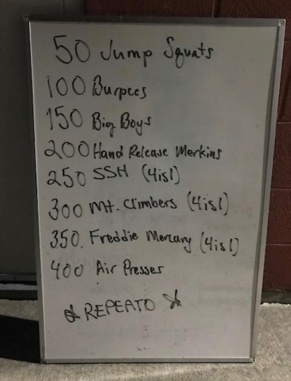 50 Jump Squats
100 Burpees
150 Big Boys
200 Hand Release Merkins
250 SSH (4is1)
300 Mt. Climbers (4is1)
350. Freddie Mercury (4is1)
400 Air Presses
REPEATO